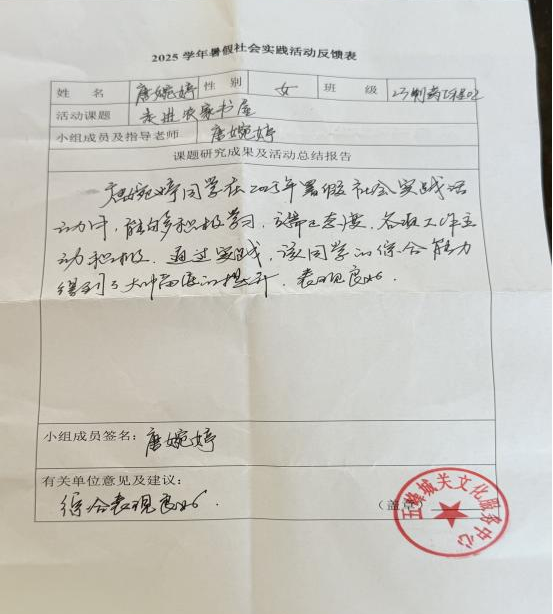 2025 学年暑假社会实践活动反馈表
姓 名 唐婉婷 性 别 女 班 级 23制药工程02
活动课题 走进农家书屋
小组成员及指导老师 唐婉婷
课题研究成果及活动总结报告
唐婉婷同学在2025年暑假社会实践活
动中，能够积极学习，端正态度，各项工作主
动积极。通过实践，该同学的综合能力
得到了大幅度的提升，表现良好。
小组成员签名：唐婉婷
有关单位意见及建议：
综合表现良好。
（盖章）
城关文化服务中心